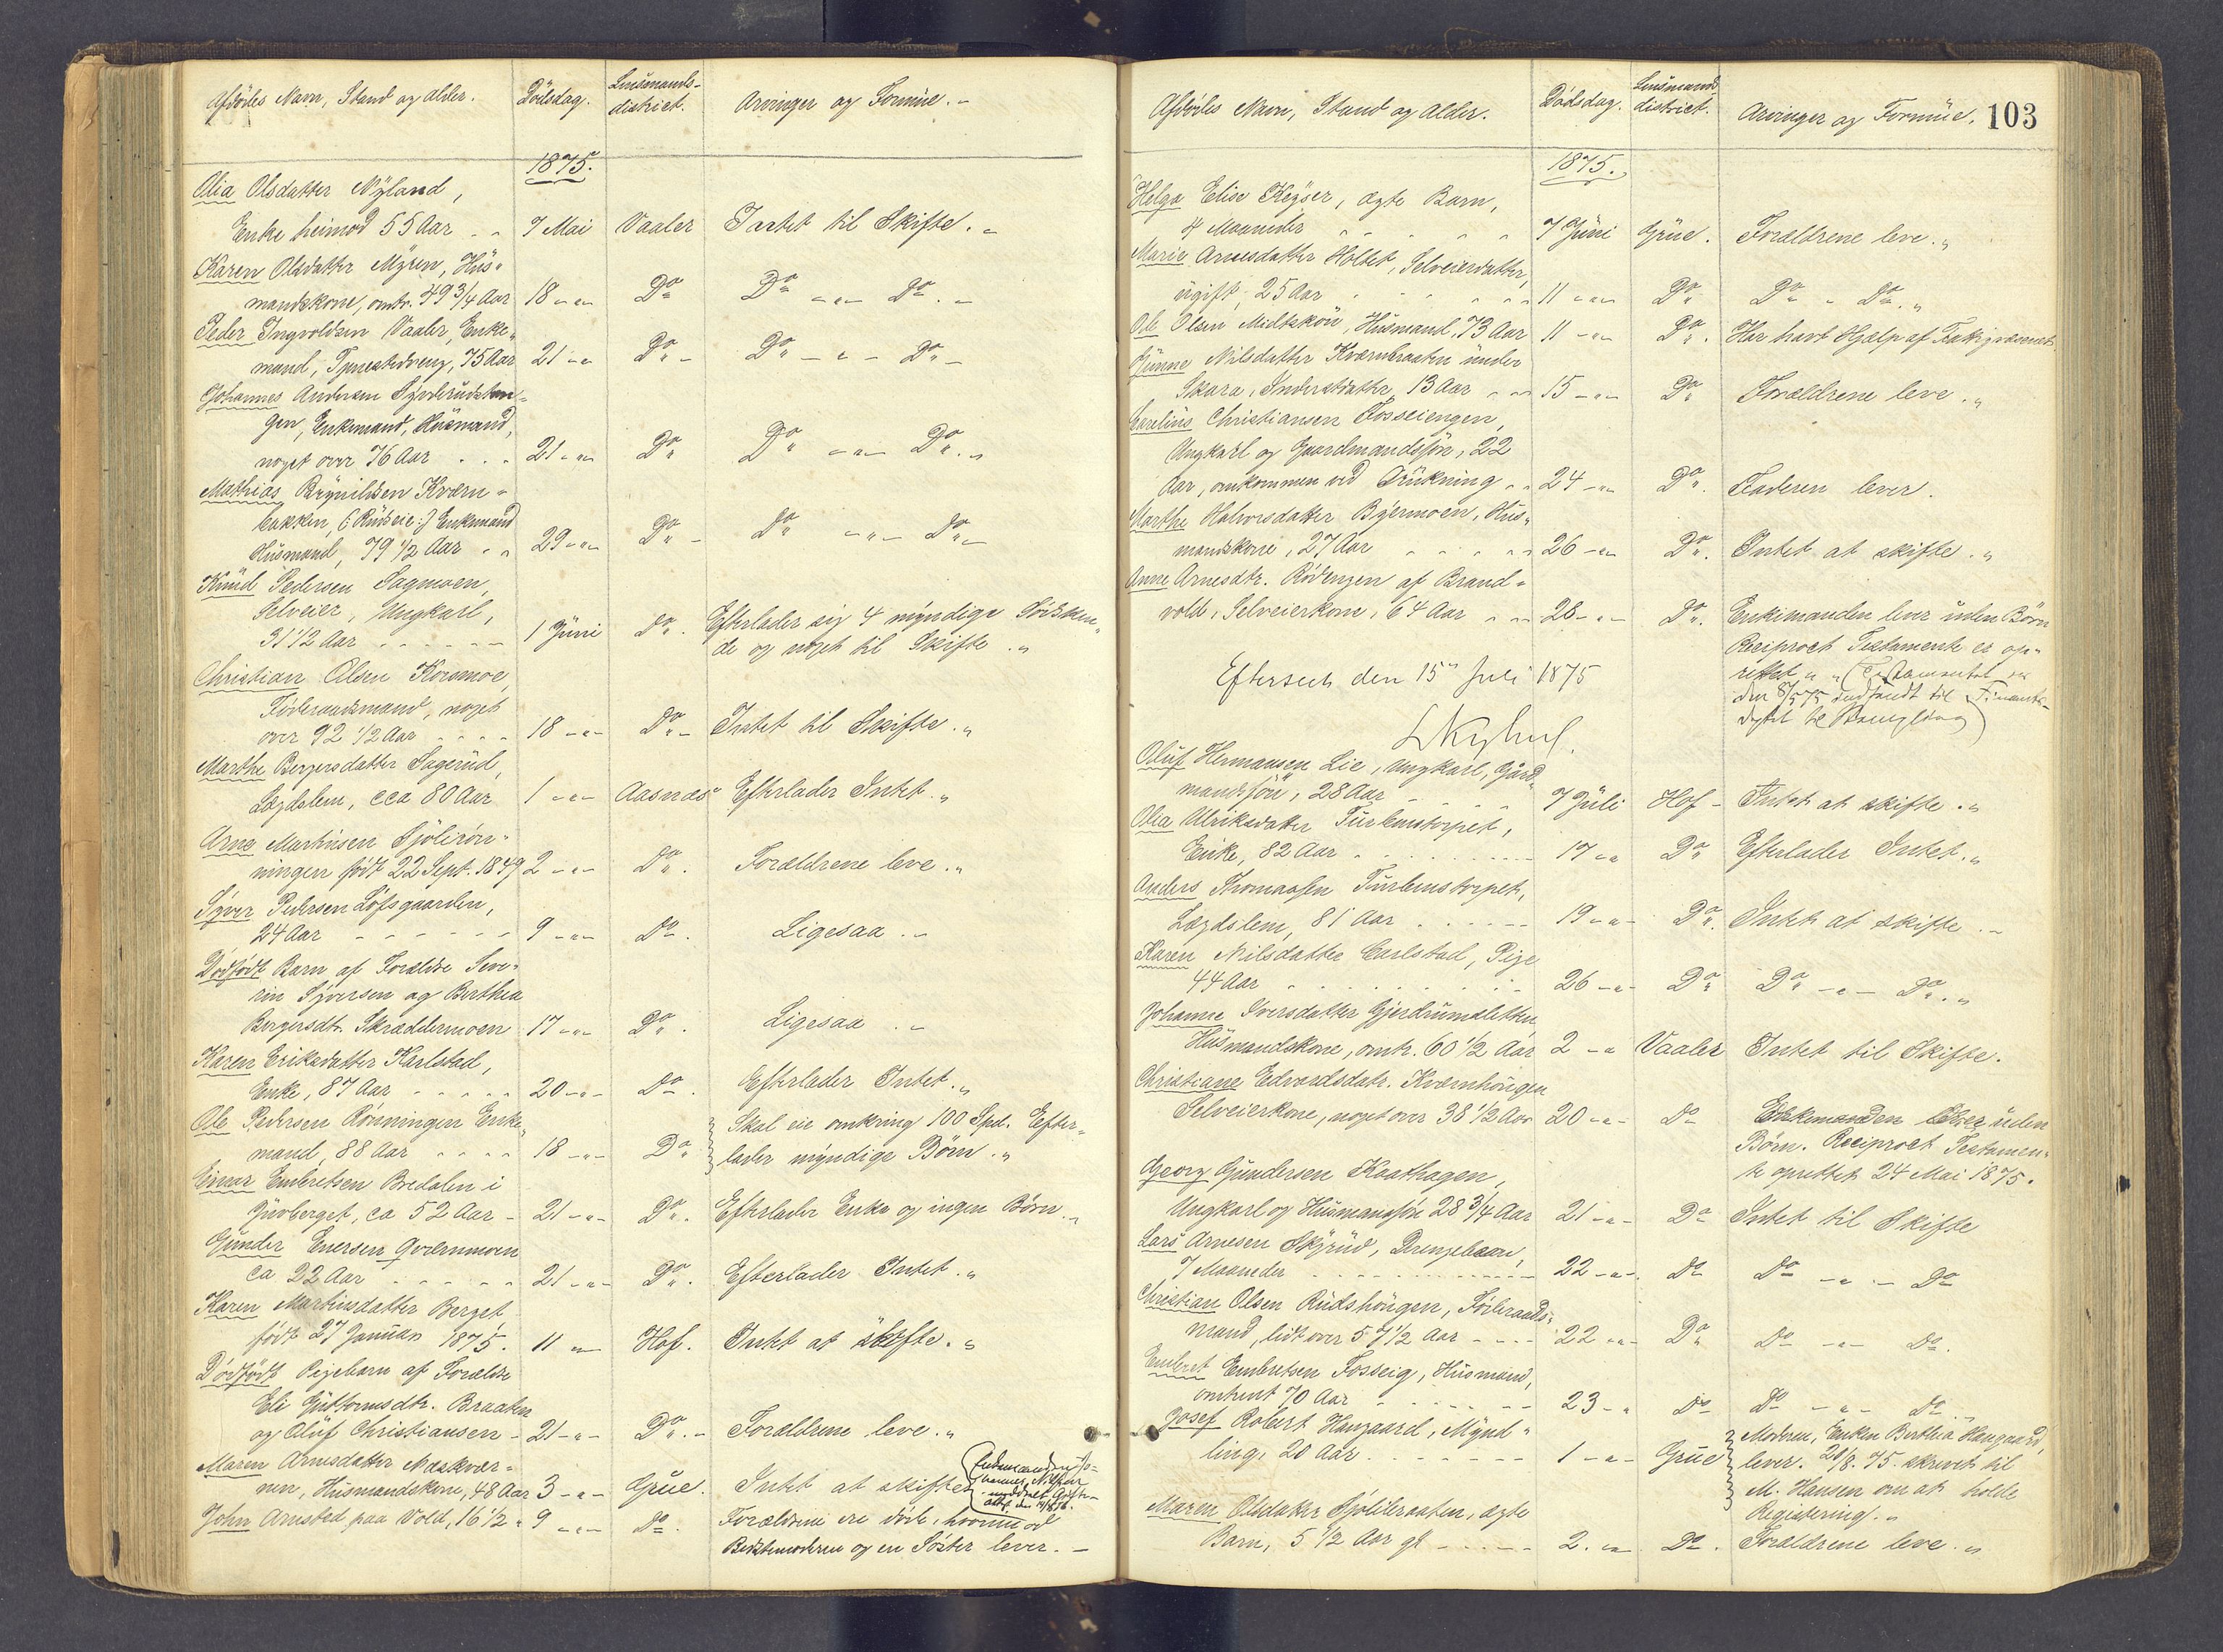 Afdødes Navn, Stand og Alder. Dödsdag. Lensmands-
district. Arvinger og Formue.-
1875.
Olia Olsdatter Nÿland,
Enke henimod 55 Aar - - 7 Mai Vaaler Intet til Skifte.-
Karen Olsdatter Mÿren, Hus-
mandskone, omtr. 49 3/4 Aar 18 - - Do Do - - Do.-
Peder Ingvoldsen Vaaler, Enke-
mand, 75 Aar 21 - - Do - Do - - Do -
Johannes Andersen
gen, Enkemand, Husmand,
noget over 76 Aar - - - 21 - - Do Do - - Do.-
Mathias Brÿnildsen Kværn-
bakken, (: Rudseie :) Enkemand
Husmand, 79 1/2 Aar - - 29 - - Do - Do - - Do.-
Knud Pedersen Sagmoen,
Selveier, Ungkarl,
31 1/2 Aar - - - - - 1 Juni Do. Efterlader sig 4 mÿndige Södsken-
de og noget til Skifte.-
Christian Olsen Korsmoe,
Föderaadsmand, noget
over 92 1/2 Aar - - - - 18 - - Do.- Intet til Skifte.-
Marthe Bergersdatter Sagerud,
Lægdslem, cca 80 Aar 1 - - Aasnæs Efterlader Intet.-
Arne Martinsen Sjölirön-
ningen født 22 Sept. 1849 2 - - Do. Forældrene leve.-
Sÿver Pedersen Löfsgaarden,
24 Aar - - - - - - 9 - - Do. Ligesaa.-
Dödfödt Barn af Forældre Seve-
rin Sÿversen og Berthea
Bergersdtr. Skræddermoen 17 - - Do. Ligesaa.-
Karen Eriksdatter Karlstad,
Enke, 87 Aar - - - - - 20 - - Do. Efterlader Intet.-
Ole Pedersen Rönningen Enke-
mand, 88 Aar - - - - 18 - - Do Skal eie omkring 100 Spd. Efter-
lader mÿndige Börn.-
Einar Embretsen Bredalen i
Gjuvberget, ca 52 Aar - 21 - - Do. Efterlader Enke og ingen Börn.-
Gunder Enersen Qværnmoen
ca 22 Aar - - - - - 21 - - Do. Efterlader Intet.-
Karen Martinsdatter Berget
født 27 Januar 1875. 11 - Hof. Intet at skifte.-
Dödfödt Pigebarn af Forældre
Eli Guttormsdtr. Braaten
og Oluf Christiansen - 21 - - Do.- Forældrene leve.-
Maren Arnesdatter Næskvær-
nen, Husmandskone, 48 Aar 3 - - Grue. Intet at skifte
(Enkemanden Jo-
hannes Nilsen
meddelt Gifte-
att.
John Arnsted paa Vold, 16 1/2 - 9 - - Do. Forældrene ere döde, hvorimod
Bedstemoderen og en Söster lever.-
Afdødes Navn, Stand og Alder. Dödsdag. Lensmands
district. Arvinger og Formue. 103
1875.
Helga Elise Keÿser, ægte Barn,
4 Maaneder - - - - - 7 Juni Grue. Forældrene leve.-
Marie Arnesdatter Holtet, Selveierdatter,
ugift, 25 Aar - - - - - 11 - - Do. Do - Do.-
Ole Olsen Midtskou, Husmand, 73 Aar 11 - - Do. Har havt Hjælp af Fattigvæsenet.
Gunne Nilsdatter Kværnbraaten under
Skara, Inderstdatter, 13 Aar - - 15 - - Do Forældrene leve.-
Karelius Christiansen Fosseiengen,
Ungkarl og Gaardmandssön, 22
Aar, omkommen ved Drukning - - 24 - - Do. Faderen lever.
Marthe Halvorsdatter Bÿermoen, Hus-
mandskone, 27 Aar - - - - - 26 - - Do. Intet at skifte.-
Anne Arnesdtr. Rödengen af Brand-
vold, Selveierkone, 64 Aar - - 28 - - Do. Enkemanden lever uden Börn
Reciproct Testamente er op-
rettet. - (Testamentet er
den 8/7 75 indsendt til Finants-
dptet til
Efterseet den 15de Juli 1875
Oluf Hermansen Lie, Ungkarl, Gård-
mandssön, 28 Aar - - - - 7 Juli Hof - Intet at skifte.-
Olia Ulriksdatter Turbenstorpet,
Enke, 82 Aar - - - - - - 17 - - Do Efterlader Intet.-
Anders Thomassen Turbenstorpet,
Lægdslem, 81 Aar - - - - - 19 - - Do. Intet at skifte.-
Karen Nilsdatter Carlstad, Pige
44 Aar - - - - - - - 26 - - Do Do - - Do.-
Johanne Iversdatter Gjerdrumsletten,
Husmandskone, omtr. 60 1/2 Aar 2 - - Vaaler Intet til Skifte.
Christiane Edvardsdatr. Kværnhougen
Selveierkone, noget over 38 1/2 Aar 20 - - Do Enkemanden lever uden
Börn. Reciproct Testamen-
te oprettet 24 Mai 1875.
Georg Gundersen Kosthagen,
Ungkarl og Husmandssön 28 3/4 Aar 21 - - Do Intet til Skifte
Lars Arnesen Skÿrud, Drengebarn,
7 Maaneder - - - - - - - 22 - - Do Do - - Do
Christian Olsen Rudshougen, Föderaads-
mand, lidt over 57 1/2 Aar - - - 22 - - Do Do - - Do.
Embret Embretsen Fosseig, Husmand,
omtrent 70 Aar - - - - - 23 - - Do Do - - Do
Josef Robert Haugaard, Mÿnd-
ling, 20 Aar - - - - - - 1 - - Grue Moderen, Enken Berthea Haugaard,
lever. 20/8. 75. skrevet til
M. Hansen om at holde
Registering.-
Maren Olsdatter Sjölibraaten, ægte
Barn, 5 1/2 Aar gl - - - - - 2. - - Do. Forældrene leve.-